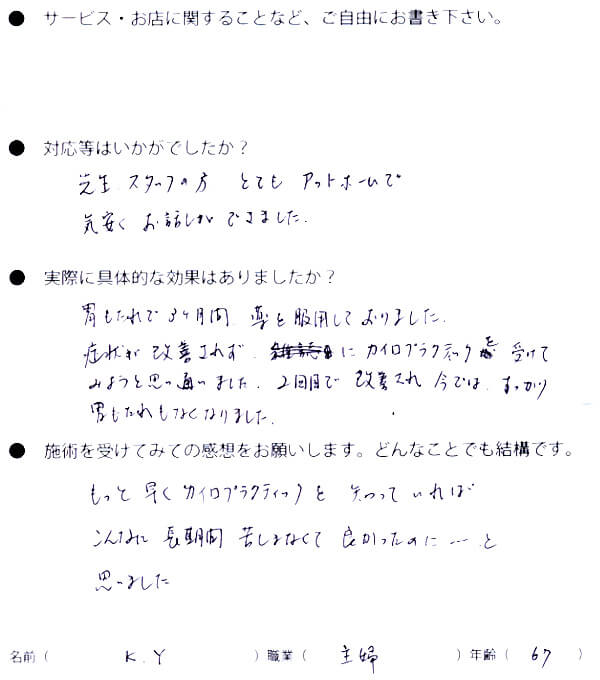 ● サービス・お店に関することなど、ご自由にお書き下さい。
● 対応等はいかがでしたか？
先生、スタッフの方 とても アットホームで
気安く お話しが できました.
● 実際に具体的な効果はありましたか？
胃もたれで 3ヶ月間 薬を服用しておりました.
症状が 改善されず、 に カイロプラクティックを 受けて
みようと思い通いました. 2回目で 改善され 今では、すっかり
胃もたれもなくなりました.
● 施術を受けてみての感想をお願いします。どんなことでも結構です。
もっと 早く カイロプラクティックを 知って いれば
こんなに 長期間 苦しまなくて 良かったのに … と
思いました
名前（ K.Y ）職業（ 主婦 ）年齢（ 67 ）